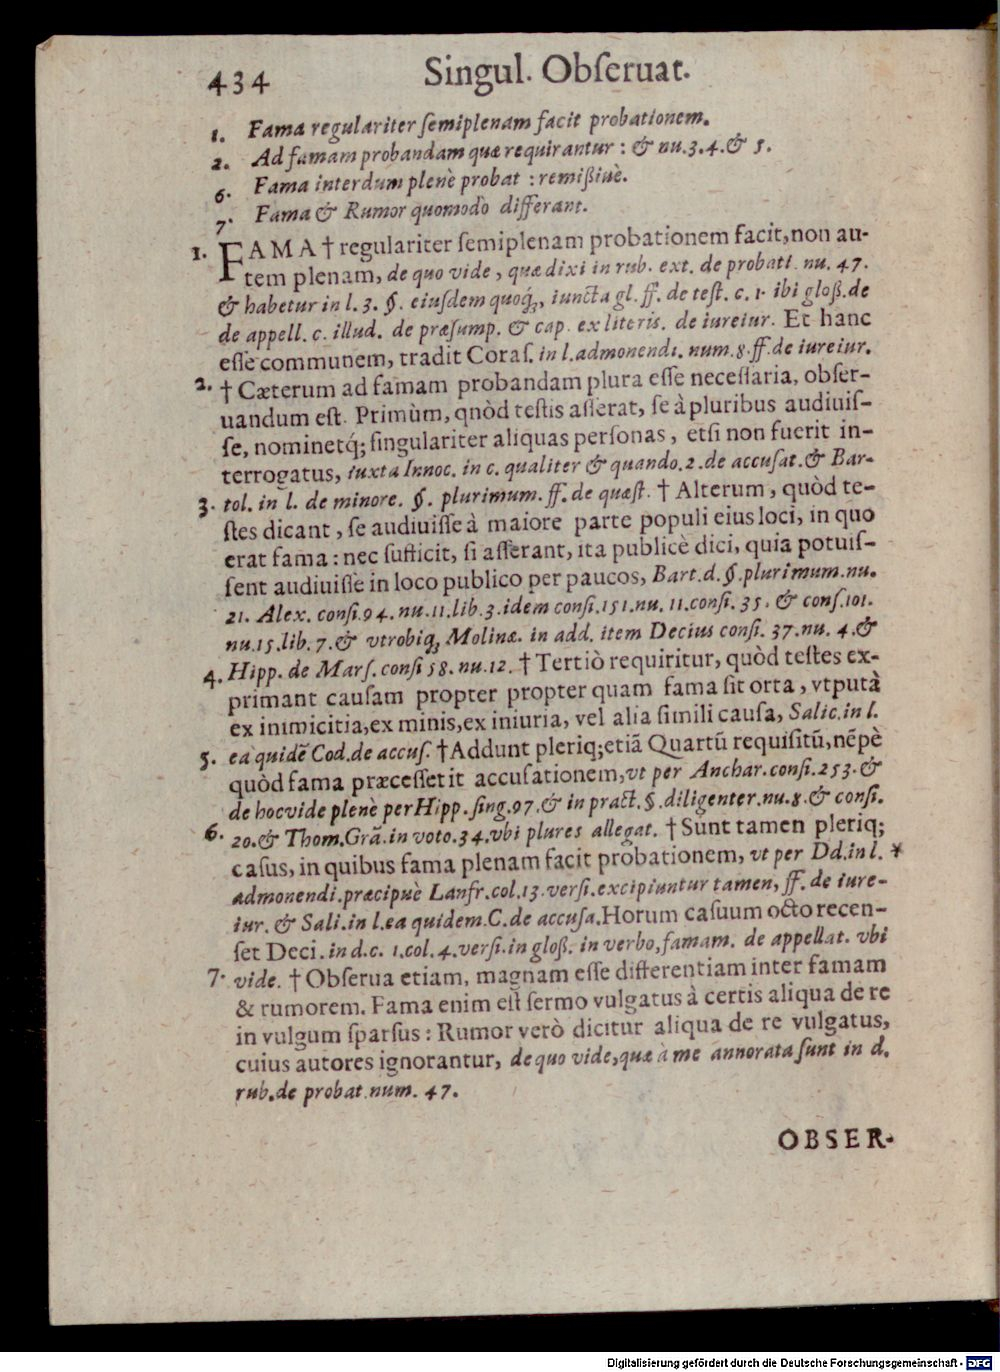 434 Singul. Obſeruat.
1. Fama regulariter ſemiplenam facit probationem.
2. Ad famam probandam quæ requirantur : & nu.3.4.& 5.
6. Fama interdum plenè probat : remißiuè.
7. Fama & Rumor quomodò differant.
1. FAMA † regulariter ſemiplenam probationem facit,non au-
tem plenam, de quo vide, quæ dixi in rub. ext. de probati. nu. 47.
& habetur in l. 3. §. eiuſdem quoq́ꝫ, iuncta gl. ff. de teſt. c. 1. ibi gloß. de
de appell. c. illud. de præſump. & cap. ex literis. de iureiur. Et hanc
eſſe communem, tradit Coraſ. in l.admonendi. num.8.ff.de iureiur.
2. † Cæterum ad famam probandam plura eſſe neceſſaria, obſer-
uandum eſt. Primùm, qnòd teſtis aſſerat, ſe à pluribus audiuiſ-
ſe, nominetq́; ſingulariter aliquas perſonas, etſi non fuerit in-
terrogatus, iuxta Innoc. in c. qualiter & quando.2.de accuſat.& Bar-
3. tol. in l. de minore. §. plurimum. ff. de quæſt. † Alterum, quòd te-
ſtes dicant, ſe audiuiſſe à maiore parte populi eius loci, in quo
erat fama : nec ſufficit, ſi aſſerant, ita publicè dici, quia potuiſ-
ſent audiuiſſe in loco publico per paucos, Bart.d.§.plurimum.nu.
21. Alex. conſi.94. nu.11.lib.3.idem conſi.151.nu. 11.conſi. 35. & conſ.101.
nu.15.lib. 7.& vtrobiqꝫ Molinæ. in add. item Decius conſi. 37.nu. 4.&
4. Hipp. de Marſ. conſi 58. nu.12. † Tertiò requiritur, quòd teſtes ex-
primant cauſam propter propter quam fama ſit orta, vtputà
ex inimicitia,ex minis,ex iniuria, vel alia ſimili cauſa, Salic.in l.
5. ea quidẽ Cod.de accuſ. † Addunt pleriq;etiã Quartũ requiſitũ,nẽpè
quòd fama præceſſetit accuſationem,vt per Anchar.conſi.253.&
de hoc vide plenè per Hipp. ſing.97.& in pract.§.diligenter.nu.8.& conſi.
6. 20.& Thom.Grã.in voto.34.vbi plures allegat. † Sunt tamen pleriq;
caſus, in quibus fama plenam facit probationem, vt per Dd.in l. *
admonendi.præcipuè Lanfr.col.13.verſi.excipiuntur tamen, ff. de iure-
iur. & Sali.in l.ea quidem.C.de accuſa.Horum caſuum octo recen-
ſet Deci. in d.c. 1.col.4.verſi.in gloß. in verbo,famam. de appellat. vbi
7. vide. † Obſerua etiam, magnam eſſe differentiam inter famam
& rumorem. Fama enim eſt ſermo vulgatus à certis aliqua de re
in vulgum ſparſus : Rumor verò dicitur aliqua de re vulgatus,
cuius autores ignorantur, de quo vide,quæ à me annotata ſunt in d.
rub.de probat.num. 47.
OBSER-
Digitalisierung gefördert durch die Deutsche Forschungsgemeinschaft - DFG